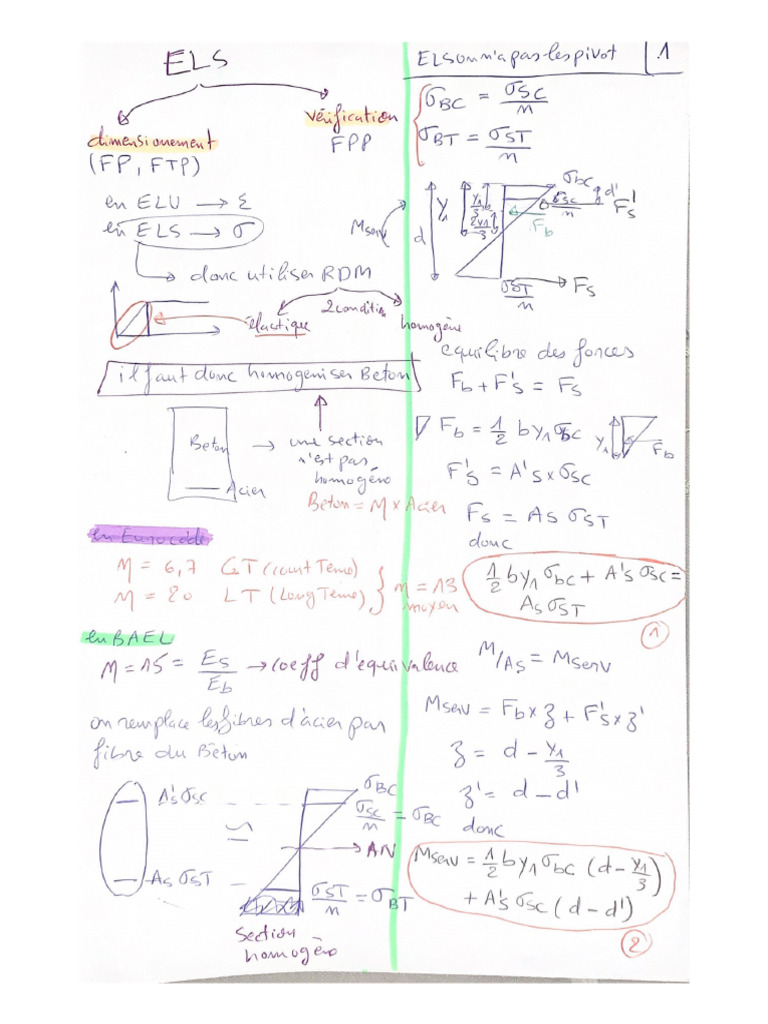 ELS
vérification
FPP
dimensionement
(FP, FTP)
en ELU → ε
en ELS → σ
donc utiliser RDM
2 condition
élactique
homogène
il faut donc homogeniser Beton
Beton
Acier
→ une section
n'est pas
homogéno
Beton = n × Acier
en Eurocode
n = 6,7 CT (court Terme)
n = 20 LT (Long Terme)
} n = 13
moyen
en BAEL
n = 15 = Es/Eb → coeff d'équivalence
on remplace les fibres d'àcier par
fibre du Bêton
A's σsc
As σsT
≃
σBC
σsc/n = σBC
AN
σsT/n = σBT
section
homogèno
ELS on n'a pas les pivot
1
σBC = σSC/n
σBT = σST/n
Mserv
d
y1
y1/3
2y1/3
σbc
σsc/n
d'
F's
Fb
σsT/n
Fs
equilibre des forces
Fb + F's = Fs
Fb = 1/2 by1 σbc
y1
Fb
F's = A's × σsc
Fs = As σsT
donc
1/2 by1 σbc + A's σsc =
As σsT
1
M/As = Mserv
Mserv = Fb × z + F's × z'
z = d - y1/3
z' = d - d'
donc
Mserv = 1/2 by1 σbc (d - y1/3)
+ A's σsc (d - d')
2